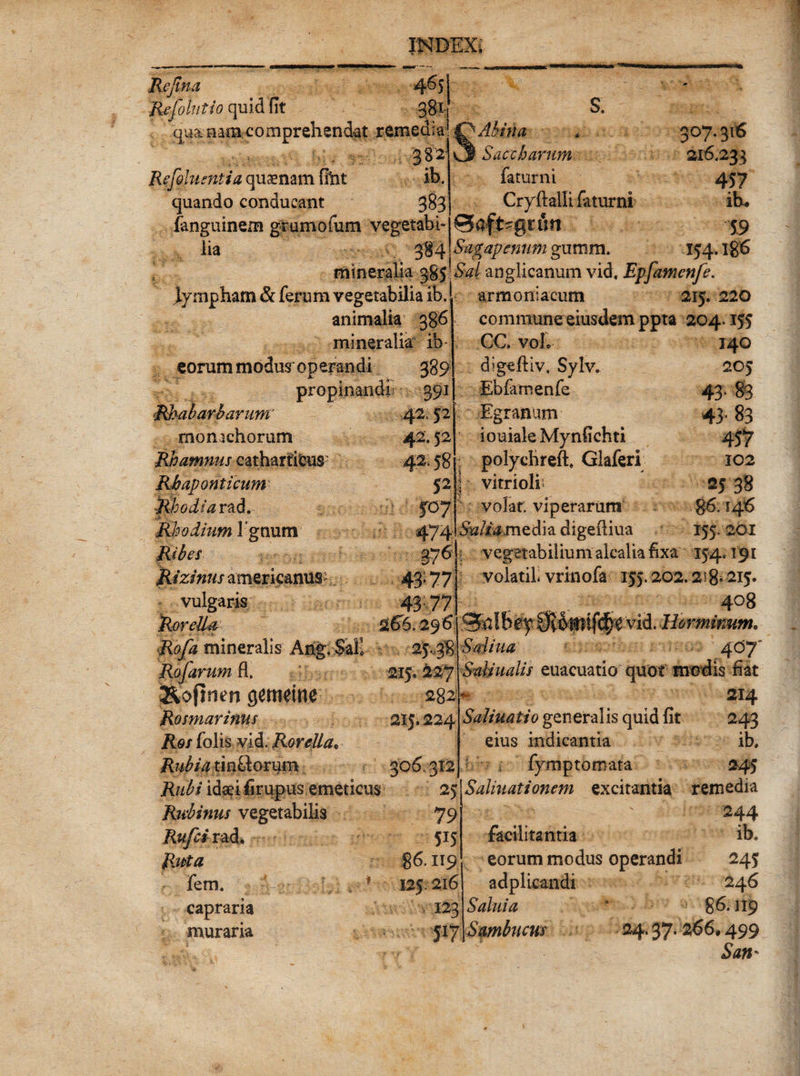 INDEX.
Reſina 465
Reſolutio quid ſit 381
quænam comprehendat remedia
382
Reſoluentia quænam ſint ib.
quando conducant 383
ſanguinem grumoſum vegetabi-
lia 384
mineralia 385
lympham & ſerum vegetabilia ib.
animalia 386
mineralia ib
eorum modus operandi 389
propinandi 391
Rhabarbarum 42. 52
monachorum 42. 52
Rhamnus catharticus 42. 58
Rhaponticum 52
Rhodia rad. 507
Rhodium lignum 474
Ribes 376
Rizinus americanus 43. 77
vulgaris 43. 77
Rorella 266. 296
Roſa mineralis Ang. Sal! 25. 38
Roſarum fl. 215. 227
Roſinen gemeine 282
Rosmarinus 215. 224
Ros ſolis vid. Rorella.
Rubia tinctorum 306. 312
Rubi idæi ſirupus emeticus 25
Rubinus vegetabilis 79
Ruſci rad. 515
Ruta 86. 119
ſem. 125. 216
capraria 123
muraria 517
S.
SAbina 307. 316
Saccharum 216. 233
ſaturni 457
Cryſtalli ſaturni ib.
Saft-grün 59
Sagapenum gumm. 154. 186
Sal anglicanum vid. Epſamenſe.
armoniacum 215. 220
commune eiusdem ppta 204. 155
CC. vol. 140
digeſtiv. Sylv. 205
Ebſamenſe 43. 83
Egranum 43. 83
iouiale Mynſichti 457
polychreſt. Glaſeri 102
vitrioli 25 38
volat. viperarum 86. 146
Salia media digeſtiua 155. 201
vegetabilium alcalia fixa 154. 191
volatil. vrinoſa 155. 202. 218. 215.
408
Salbey Römiſche vid. Horminum.
Saliua 407
Saliualis euacuatio quot modis fiat
214
Saliuatio generalis quid ſit 243
eius indicantia ib.
ſymptomata 245
Saliuationem excitantia remedia
244
facilitantia ib.
eorum modus operandi 245
adplicandi 246
Saluia 86. 119
Sambucus 24. 37. 266. 499
San-